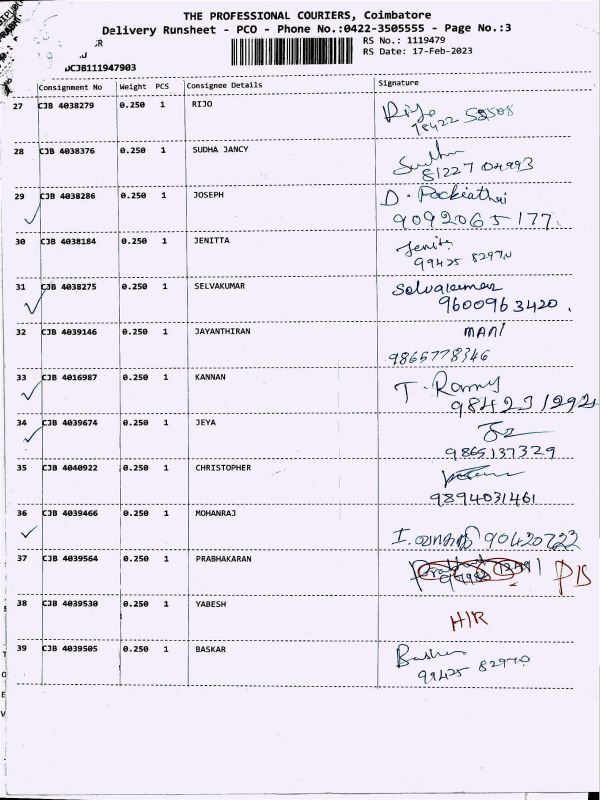 THE PROFESSIONAL COURIERS, Coimbatore
Delivery Runsheet - PCO - Phone No.:0422-3505555 - Page No.:3
RS No.: 1119479
RS Date: 17-Feb-2023
CJB111947903
Consignment No Weight PCS Consignee Details Signature
27 CJB 4038279 0.250 1 RIJO
28 CJB 4038376 0.250 1 SUDHA JANCY
81227 04993
29 CJB 4038286 0.250 1 JOSEPH
9092065177
30 CJB 4038184 0.250 1 JENITTA
99425 82970
31 CJB 4038275 0.250 1 SELVAKUMAR Selvakumar
9600963420.
32 CJB 4039146 0.250 1 JAYANTHIRAN MANI
9865778346
33 CJB 4016987 0.250 1 KANNAN
34 CJB 4039674 0.250 1 JEYA
9865137329
35 CJB 4040922 0.250 1 CHRISTOPHER
9894031461
36 CJB 4039466 0.250 1 MOHANRAJ
37 CJB 4039564 0.250 1 PRABHAKARAN
38 CJB 4039530 0.250 1 YABESH
39 CJB 4039505 0.250 1 BASKAR
99425 82970